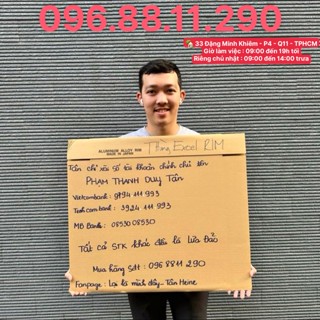 096.88.11.290
33 Đặng Minh Khiêm - P4 - Q11 - TPHCM
Giờ làm việc : 09:00 đến 19h tối
Riêng chủ nhật : 09:00 đến 14:00 trưa
ALUMINIUM ALLOY RIM
MADE IN JAPAN
Thùng Excel RIM
Tân chỉ xài số tài khoản chính chủ tên
PHẠM THANH DUY TÂN
Vietcombank : 9794 111 993
Techcombank : 3924 111 993
MB Bank : 08530 08530
Tất cả STK khác đều là Lừa Đảo
Mua hàng Sđt : 096 8811 290
Fanpage : Lại là mình đây... Tân Heine